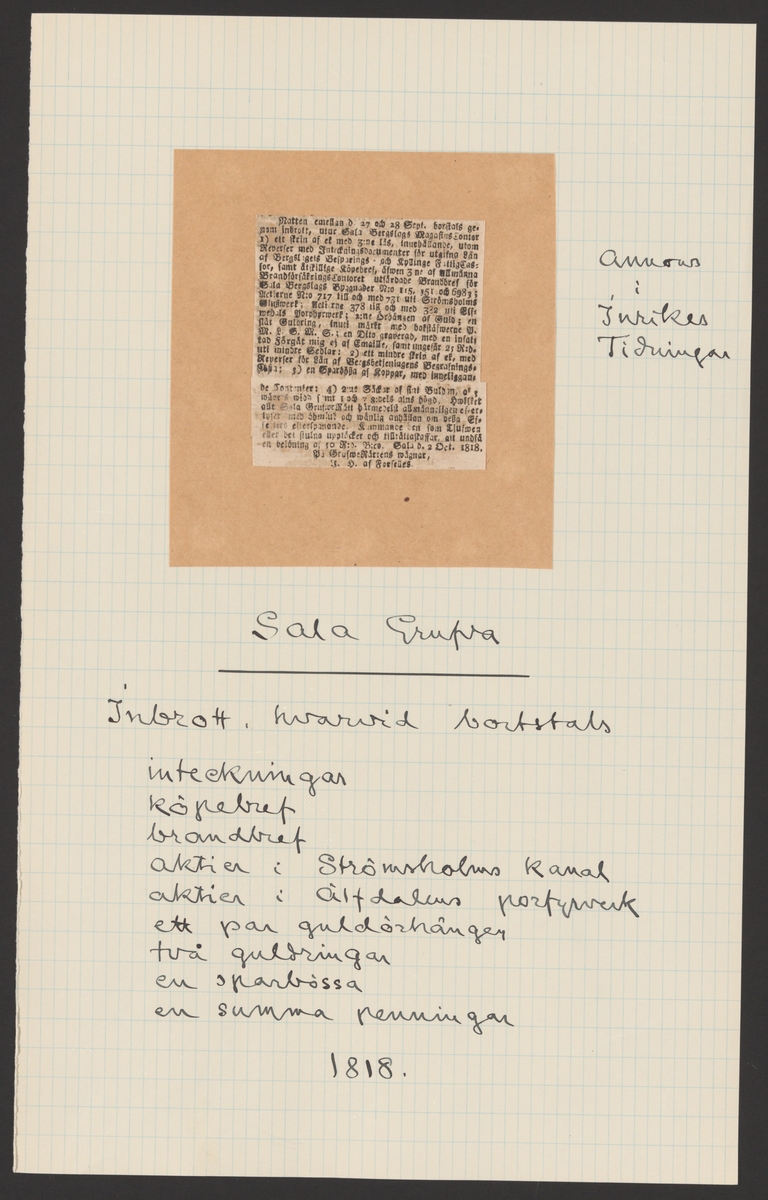 Natten emellan d. 27 och 28 Sept. bortstals ge-
nom inbrott, utur Sala Bergslags MagasinsContor
1) ett skrin af ek med 3:ne lås, innehållande, utom
Reverser med Inteckningsdocumenter för utgifna Lån
af Bergslagets Besparings- och Kyllinge FattigCas-
sor, samt åtskillige Köpebref, äfwen 3:ne af Allmänna
BrandförsäkringsContoret utfärdade Brandbref för
Sala Bergslags Byggnader N:o 115, 151 och 6983;
Actierne N:o 717 till och med 731 uti Strömsholms
Slußwerk; Actierne 378 till och med 382 uti Elf-
wedals Porphyrwerk; 2:ne Örhängen af Guld; en
slät Guldring, inuti märkt med bokstäfwerne P.
M. L. S. M. S.; en Dito graverad, med en infat-
tad Förgät mig ej af Emaille, samt ungefär 25 R:d.
uti mindre Sedlar: 2) ett mindre skrin af ek, med
Reverser för Lån af Bergsbetjeningens Begrafnings-
Caßa: 3) en Sparbößa af Koppar, med inneliggan-
de 4) Säckar af
wide 1 och alns högd. Hwilket
allt Sala GrufweRätt härmedelst allmänneligen efter-
lyser med ödmjuk och wänlig anhållan om deßa Ef-
fecters efterspanande. Kommande den som Tjufwen
eller det stulna upptäcker och tillrättaskaffar, att undfå
en belöning af 50 R:d. B:co. Sala d. 2 Oct. 1818.
På GrufweRättens wägnar,
af Forselles
Annons
i
Inrikes
Tidningar
Sala Grufva
Inbrott, hvarvid bortstals
inteckningar
köpebref
brandbref
aktier i Strömsholms kanal
aktier i Älfdalens porfyrverk
ett par guldörhängen
två guldringar
en sparbössa
en summa penningar
1818.